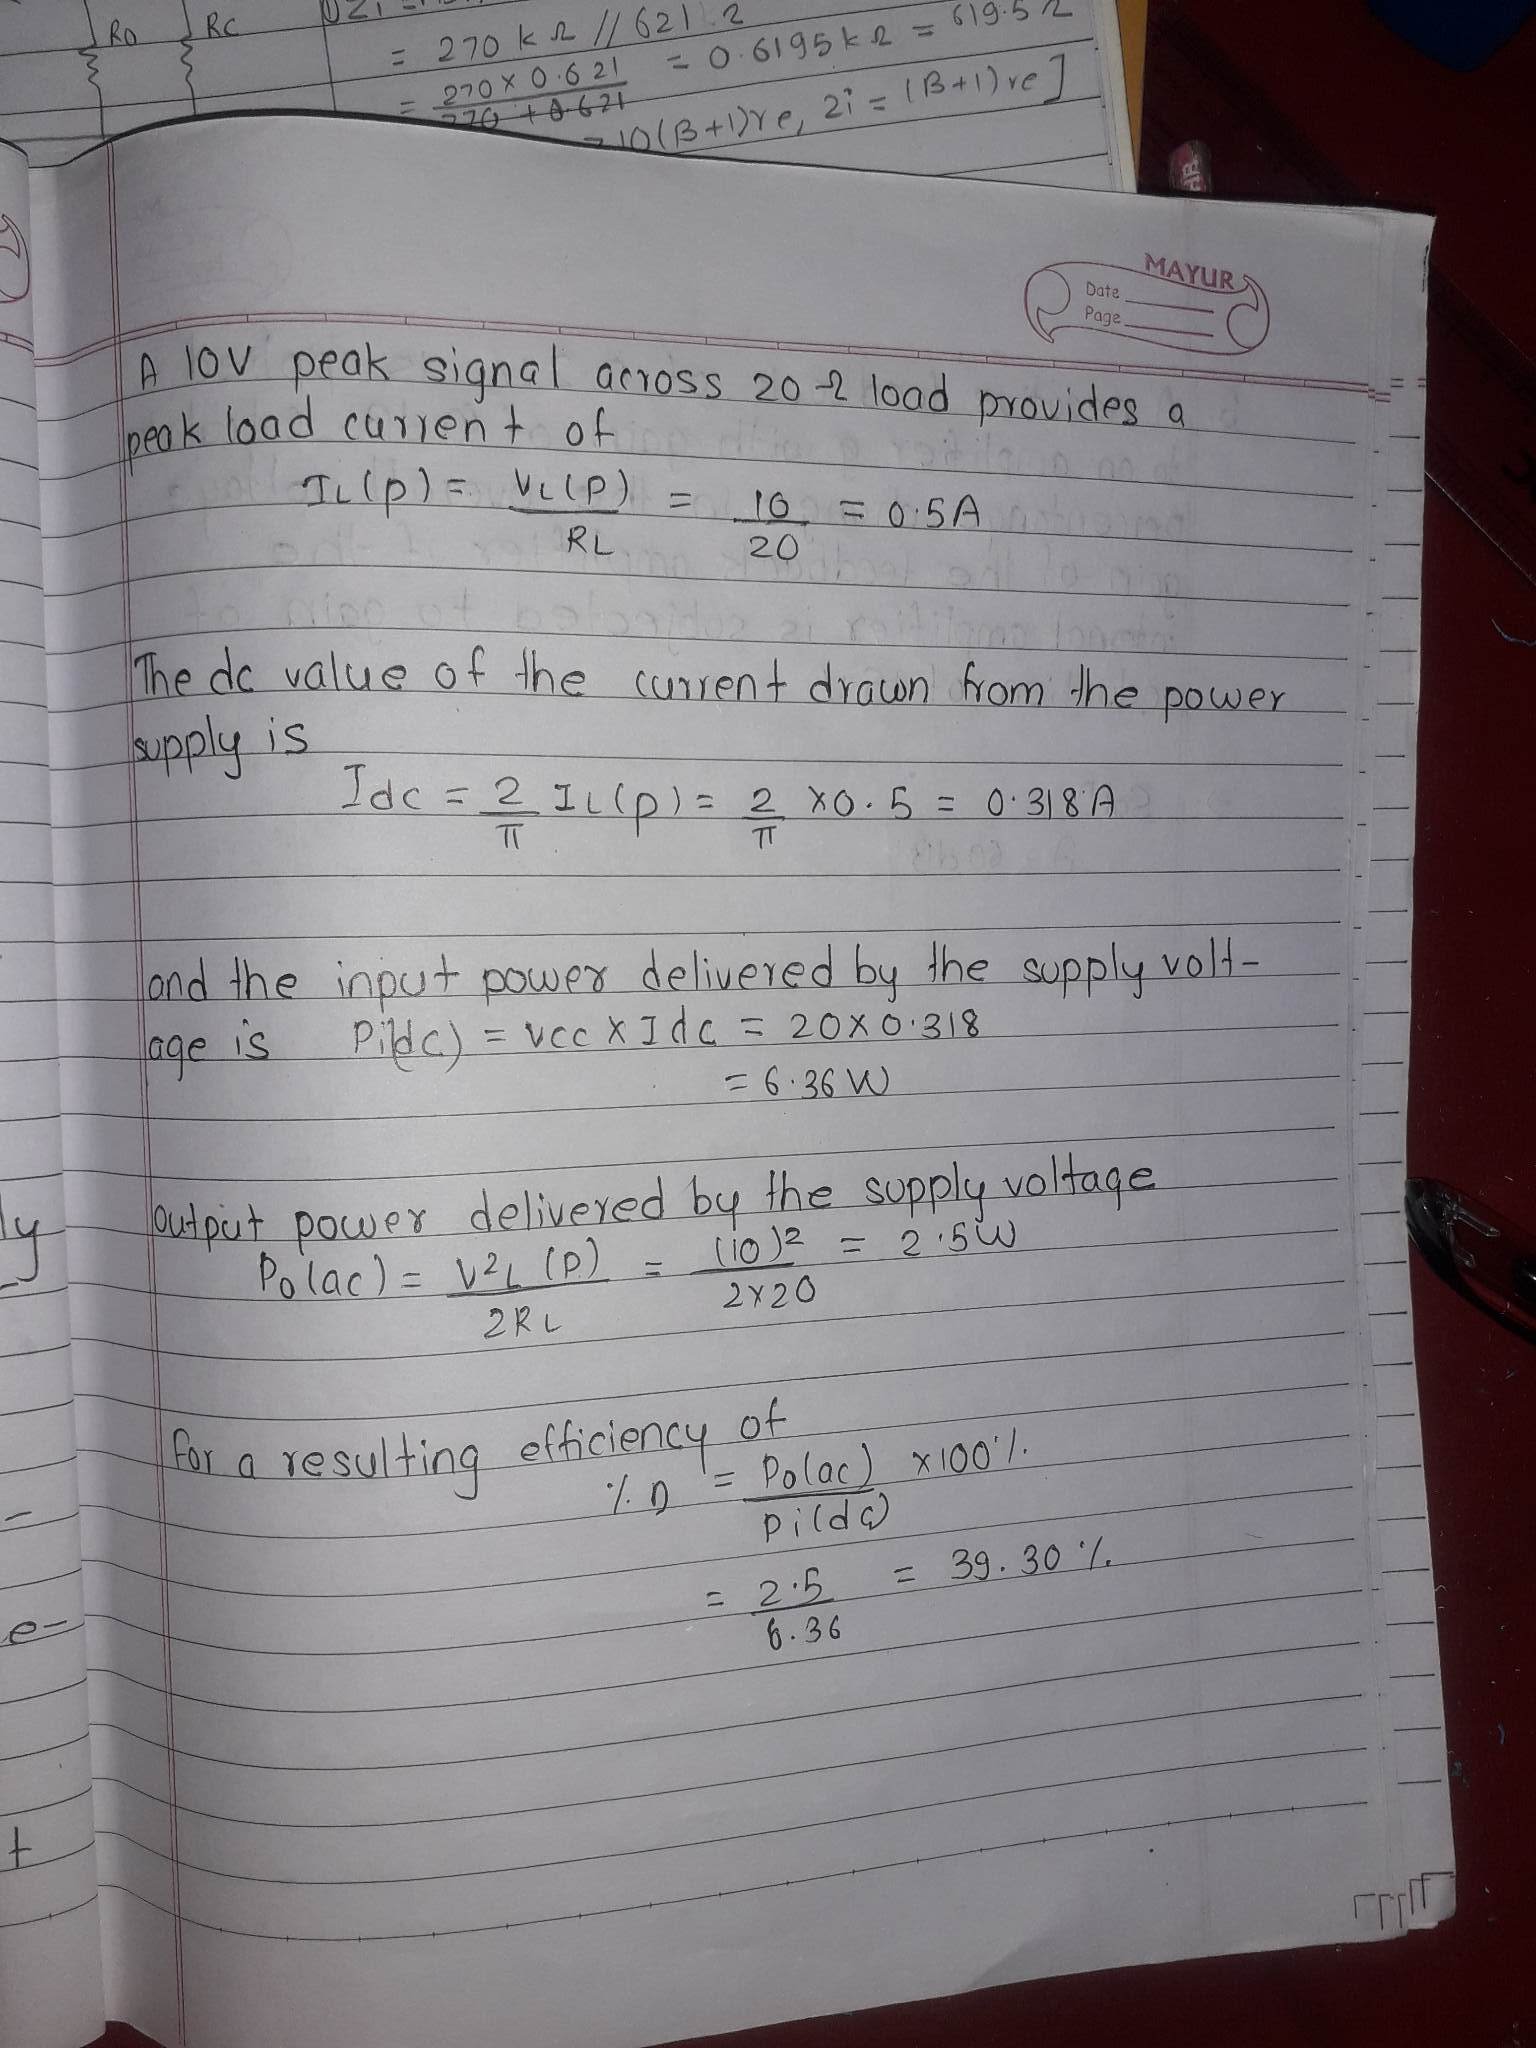 Ro
Rc
= 270 k Ω // 621 Ω
= 270 × 0.621 = 0.6195 k Ω = 619.5 Ω
270 + 0.621
= 10(B+1)re, zi = (B+1)re]
MAYUR
Date
Page
A 10V peak signal across 20 Ω load provides a
peak load current of
IL(p) = VL(P) = 10 = 0.5A
RL 20
The dc value of the current drawn from the power
supply is
Idc = 2 IL(p) = 2 × 0.5 = 0.318 A
π π
and the input power delivered by the supply volt-
age is Pi(dc) = Vcc × Idc = 20 × 0.318
= 6.36 W
output power delivered by the supply voltage
Po(ac) = V²L (P) = (10)² = 2.5W
2RL 2×20
for a resulting efficiency of
% η = Po(ac) × 100 %
Pi(dc)
= 2.5 = 39.30 %
6.36
ly
e-
t